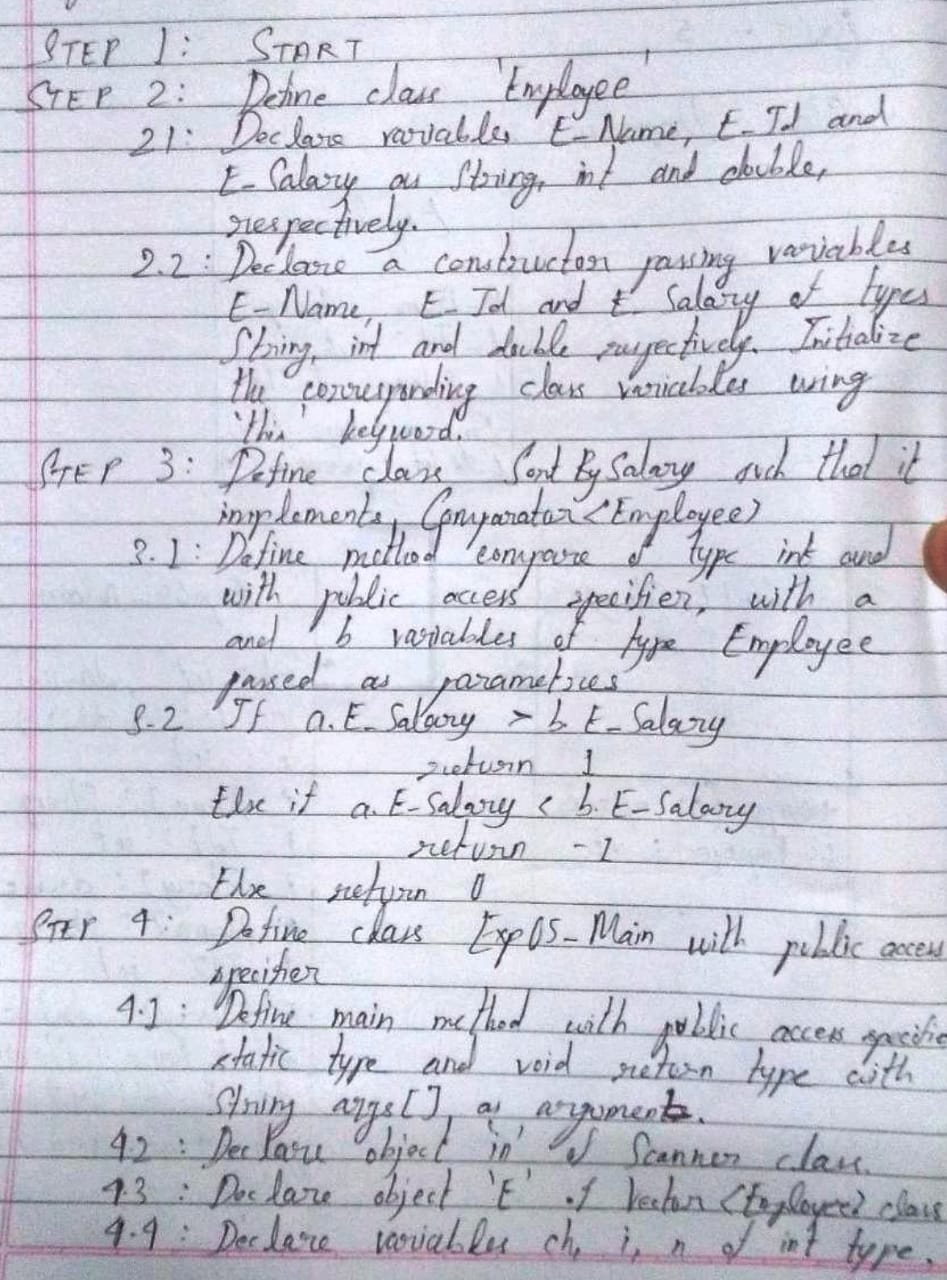 STEP 1: START
STEP 2: Define class 'Employee'
21: Declare variables E-Name, E-Id and
E-Salary as String, int and double,
respectively.
2.2: Declare a constructor passing variables
E-Name, E-Id and E Salary of types
String, int and double respectively. Initialize
the corresponding class variables using
'this' keyword.
STEP 3: Define class Sort By Salary such that it
implements Comparator<Employee>
3.1: Define method 'compare' of type int and
with public access specifier, with a
and b variables of type Employee
passed as parametres
3.2 If a.E_Salary > b.E_Salary
return 1
Else if a.E-Salary < b.E-Salary
return -1
Else return 0
STEP 4: Define class Exp05-Main with public access
specifier
4.1: Define main method with public access specifie
static type and void return type with
String args[], as argument.
4.2: Declare object 'in' of Scanner class.
4.3: Declare object 'E' of Vector<Employee> class
4.4: Declare variables ch, i, n of int type.